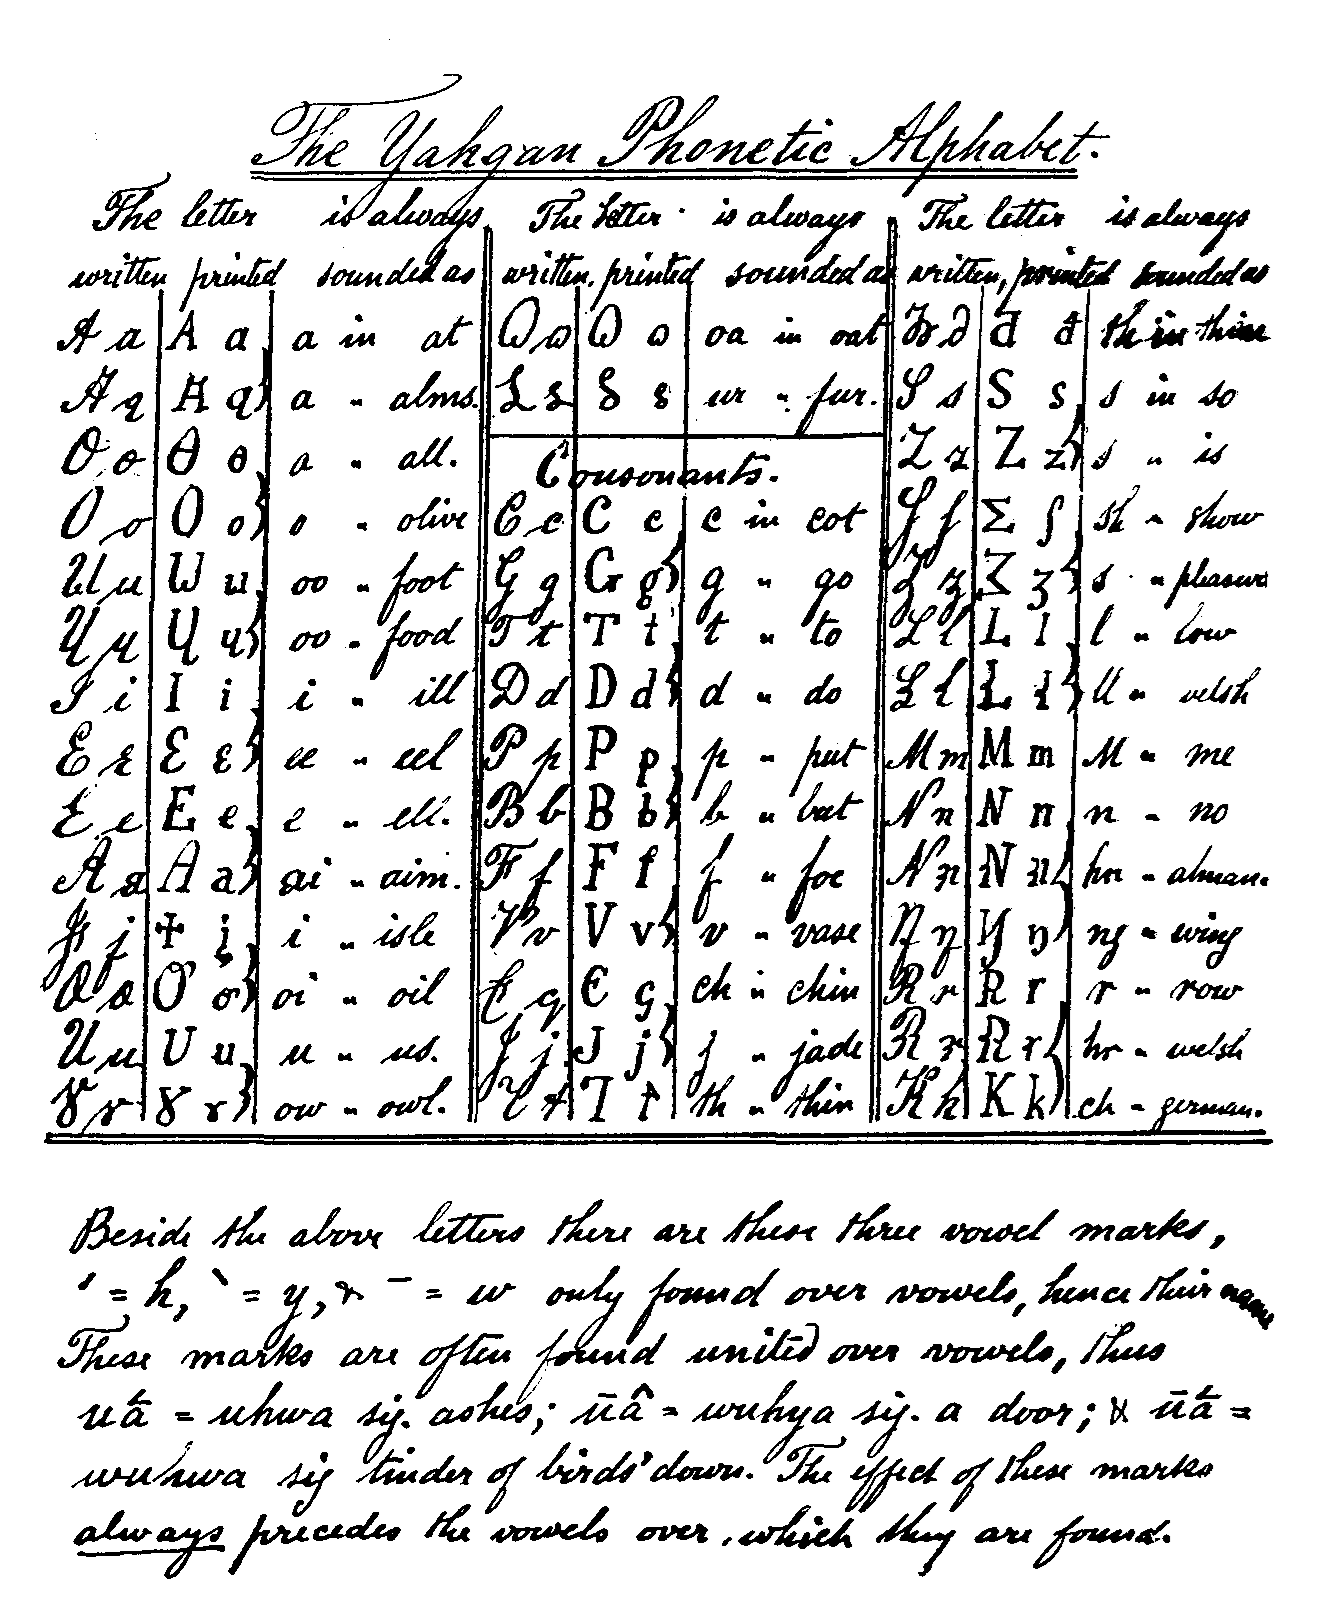 The Yahgan Phonetic Alphabet.
The letter is always The letter is always The letter is always
written printed sounded as written, printed sounded as written, printed sounded as
A a A a a in at
Ꞷ ꞷ Ꞷ ꞷ oa in oat
đ đ th in thine
A q A q a " alms.
ur " fur.
S s S s s in so
Ɵ ɵ Ɵ ɵ a " all.
Consonants.
Z z Z z s " is
O o O o o " olive
C c C c c in cot
Ʃ ʃ sh " show
U u W u oo " foot
G g G g g " go
Ʒ ʒ s " pleasure
Ɥ ɥ Ɥ ɥ oo " food
T t T t t " to
L l L l l " low
I i I i i " ill
D d D d d " do
Ł ł Ł ł ll " welsh
Ɛ ɛ Ɛ ɛ ee " eel
P p P p p " put
M m M m M " me
E e E e e " ell.
B b B b b " bat
N n N n n " no
A a A a ai " aim.
F f F f f " foe
N n N n hn " alman.
i " isle
V v V v v " vase
ŋ ŋ ng " wing
oi " oil
Є ç ch " chin
R r R r r " row
U u U u u " us.
J j J j j " jade
R r R r hr " welsh
Ɣ ɤ Ɣ ɤ ow " owl.
th " thin
K k K k ch " german.
Beside the above letters there are these three vowel marks,
ˊ = h, ˋ = y, & ˉ = w only found over vowels, hence their name
These marks are often found united over vowels, thus
uā́ = uhwa sig. ashes; ūâ = wuhya sig. a door; & ūā́ =
wuhwa sig tinder of birds' down. The effect of these marks
always precedes the vowels over which they are found.